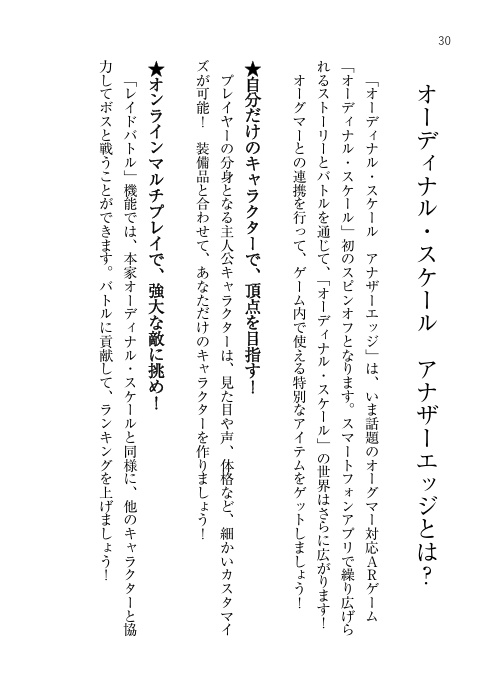 30
オーディナル・スケール　アナザーエッジとは？
「オーディナル・スケール　アナザーエッジ」は、いま話題のオーグマー対応ＡＲゲーム
「オーディナル・スケール」初のスピンオフとなります。スマートフォンアプリで繰り広げら
れるストーリーとバトルを通じて、「オーディナル・スケール」の世界はさらに広がります！
オーグマーとの連携を行って、ゲーム内で使える特別なアイテムをゲットしましょう！
★自分だけのキャラクターで、頂点を目指す！
プレイヤーの分身となる主人公キャラクターは、見た目や声、体格など、細かいカスタマイ
ズが可能！　装備品と合わせて、あなただけのキャラクターを作りましょう！
★オンラインマルチプレイで、強大な敵に挑め！
「レイドバトル」機能では、本家オーディナル・スケールと同様に、他のキャラクターと協
力してボスと戦うことができます。バトルに貢献して、ランキングを上げましょう！